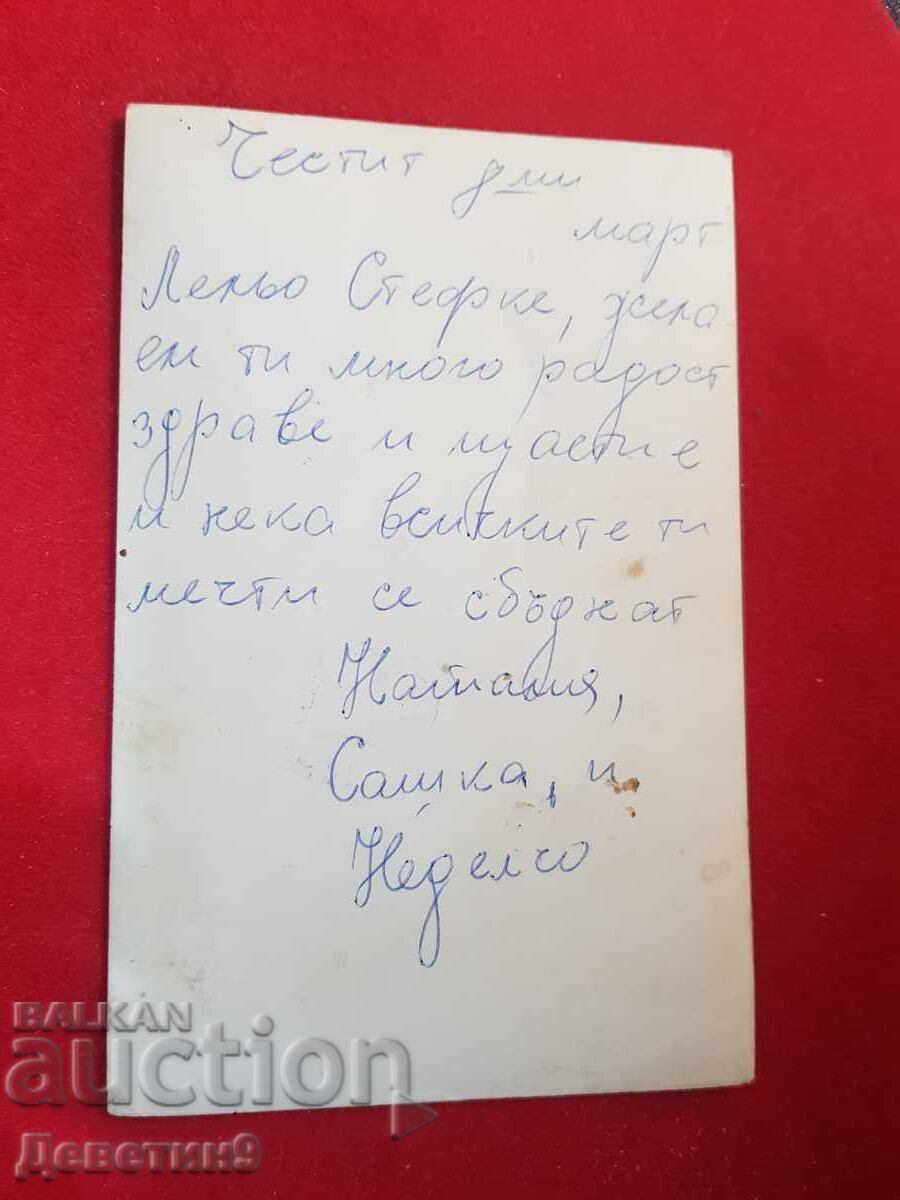 Честит 8ми
март
Леньо Стефке, жела-
ем ти много радост
здраве и щастие
и нека всичките ти
мечти се сбъднат
Наталия,
Сашка, и
Неделчо
BALKAN
auction
Деветин9